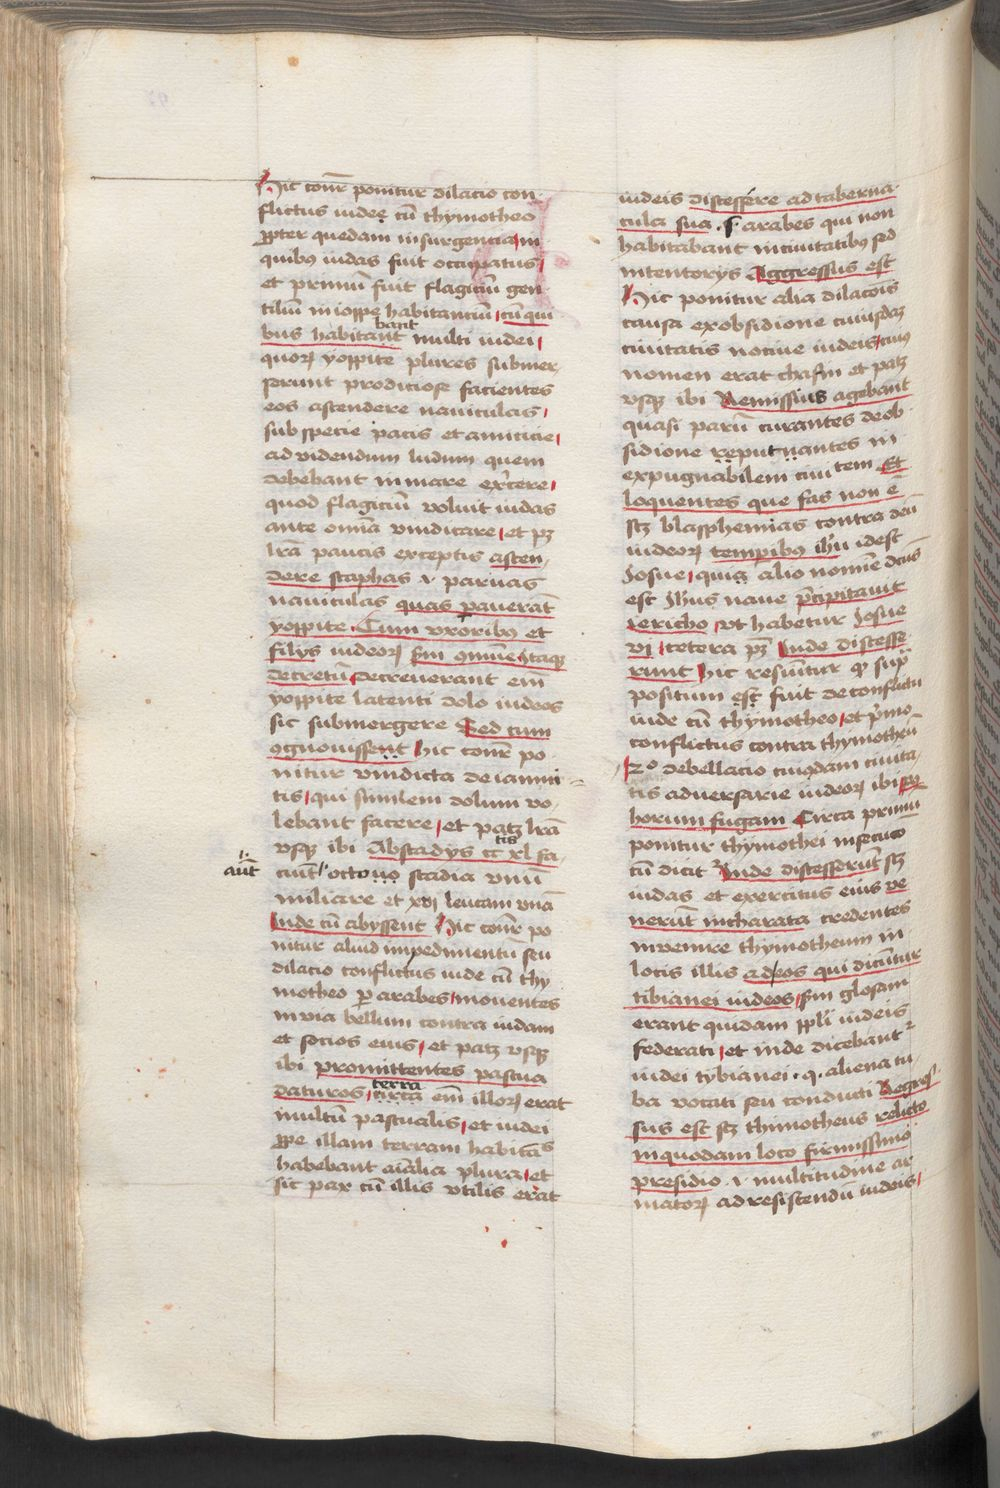 Hic conr̄ ponitur dilacio con
flictus iudee cū thymotheo
ꝓpter quedam insurgencia in
quibus iudas fuit occupatus
et primū fuit flagiciū gen
tiliū in ioppe habitanciū cū qui
bus habitant bant multi iudei
quoꝝ yoppite plures submer
serunt prodiciose facientes
eos ascendere nauiculas
sub specie pacis et amicicie
ad videndum ludum quem
debebant in mare exercere
quod flagiciū voluit iudas
ante omīa vindicare et pꝫ
lrā paucis exceptis ascen
dere scaphas ⁊ paruas
nauiculas quas pauerāt
yoppite Cum vxoribꝰ et
filys iudeoꝝ Sm̄ 9mūe itaqꝫ
decretū decreuerant em̄
yoppite latenti dolo iudeos
sic submergere Sed cum
9gnouissent Hic conr̄ po
nitur vindicta de iamni
tis qui similem dolum vo
lebant facere et patꝫ lrā
vsqꝫ ibi Abstadys cc xl tis fa
aūt ciunt octo uo stadia vnū
miliare et xvj leucam vnā
Inde cū abyssent Hic conr̄ po
nitur aliud impedimentū seu
dilacio conflictus iude cū thy
motheo ꝑ arabes mouentes
in via bellum contra iudam
et socios eius et patꝫ vsqꝫ
ibi promittentes pascua
daturos circa terra em̄ illoꝝ erat
multū pascualis et iudei
ꝓpe illam terram habitātes
habebant aīalia plura et
sic pax cū illis vtilis erat
iudeis discessere ad taberna
cula sua .s. arabes qui non
habitabant in ciuitatibꝰ sed
in tentorys Aggressus est
Hic ponitur alia dilacōis
causa ex obsidione cuiusdaꝫ
ciuitatis nociue iudeis cuiꝰ
nomen erat chasfin et patꝫ
vsqꝫ ibi Remissius agebant
quasi parū curantes de ob
sidione reputnantes in
expugnabilem ciuitem Et
loquentes que fas non ē
scꝫ blasphemias contra deū
iudeoꝝ tempibꝰ ihū idest
Josue quia alio nomīe dcūs
est Jhus naue p̄cipitauit
iericho vt habetur Josue
vj cetera pꝫ Inde discesse
runt Hic resūitur qd sup̄
positum est fuit de conflictu
iude cū thymotheo et p̄mo
conflictus contra thymotheū
2º debellacio cuiꝰdam ciuita
tis aduersarie iudeoꝝ ibi Po
horum fugam Circa primū
ponitur thymothei insecucō
cū dicit Inde discesserūt scꝫ
iudas et exercitus eius ve
nerūt in charata credentes
inuenire thymotheum in
locis illis ad eos qui dicūtur
tibianei iudeos Sm̄ glosam
erant quidam ppli iudeis
federati et inde dicebant
iudei tybianei .q. aliena tu
ba vocati seu conducti Regres
sus est scꝫ thimotheus relicto
in quodam loco firmissimo
presidio ⁊ multitudine ar
matoꝝ ad resistendū iudeis